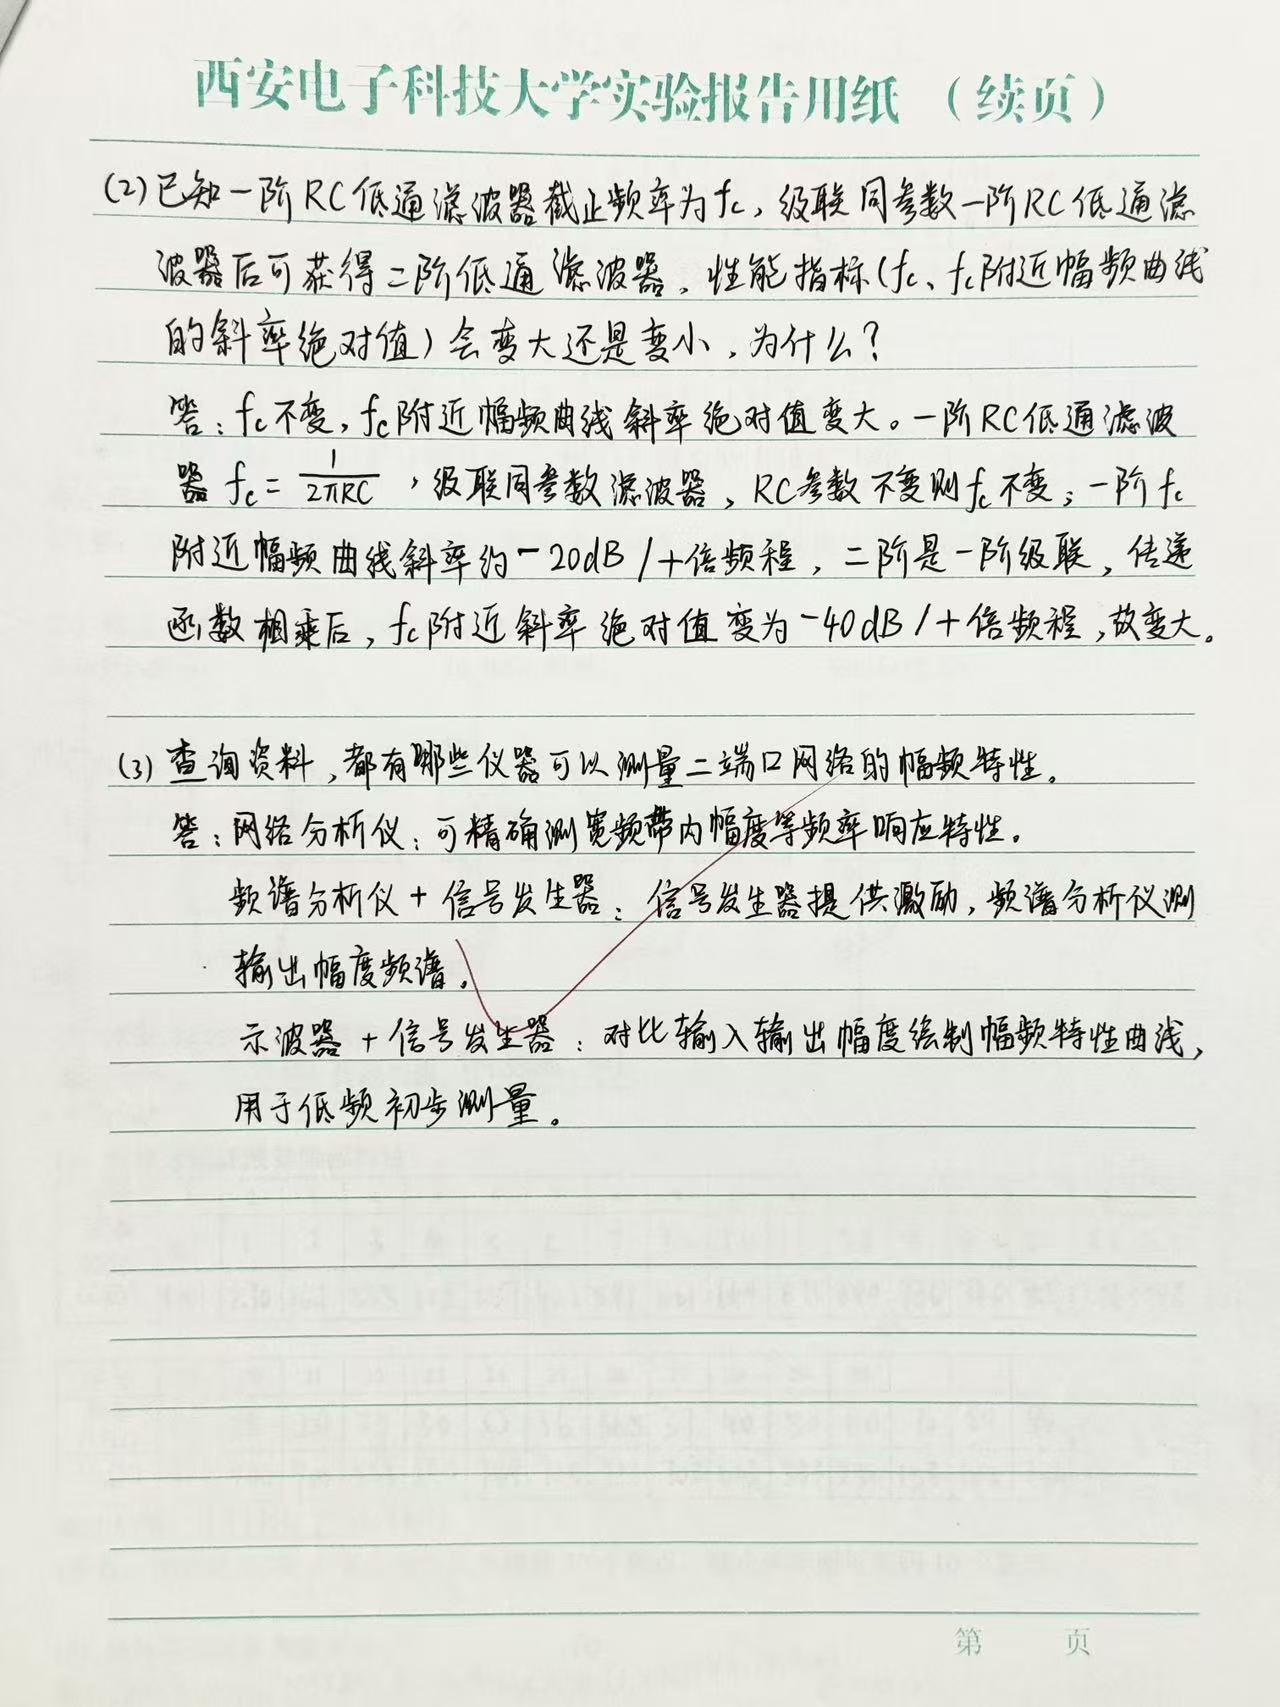 西安电子科技大学实验报告用纸（续页）
(2) 已知一阶RC低通滤波器截止频率为fc，级联同参数一阶RC低通滤
波器后可获得二阶低通滤波器，性能指标(fc、fc附近幅频曲线
的斜率绝对值)会变大还是变小，为什么？
答：fc不变，fc附近幅频曲线斜率绝对值变大。一阶RC低通滤波
器 fc = 1/2πRC ，级联同参数滤波器，RC参数不变则fc不变；一阶fc
附近幅频曲线斜率约-20dB/十倍频程，二阶是一阶级联，传递
函数相乘后，fc附近斜率绝对值变为-40dB/十倍频程，故变大。
(3) 查询资料，都有哪些仪器可以测量二端口网络的幅频特性。
答：网络分析仪：可精确测宽频带内幅度等频率响应特性。
频谱分析仪 + 信号发生器：信号发生器提供激励，频谱分析仪测
输出幅度频谱。
示波器 + 信号发生器：对比输入输出幅度绘制幅频特性曲线，
用于低频初步测量。
第 页